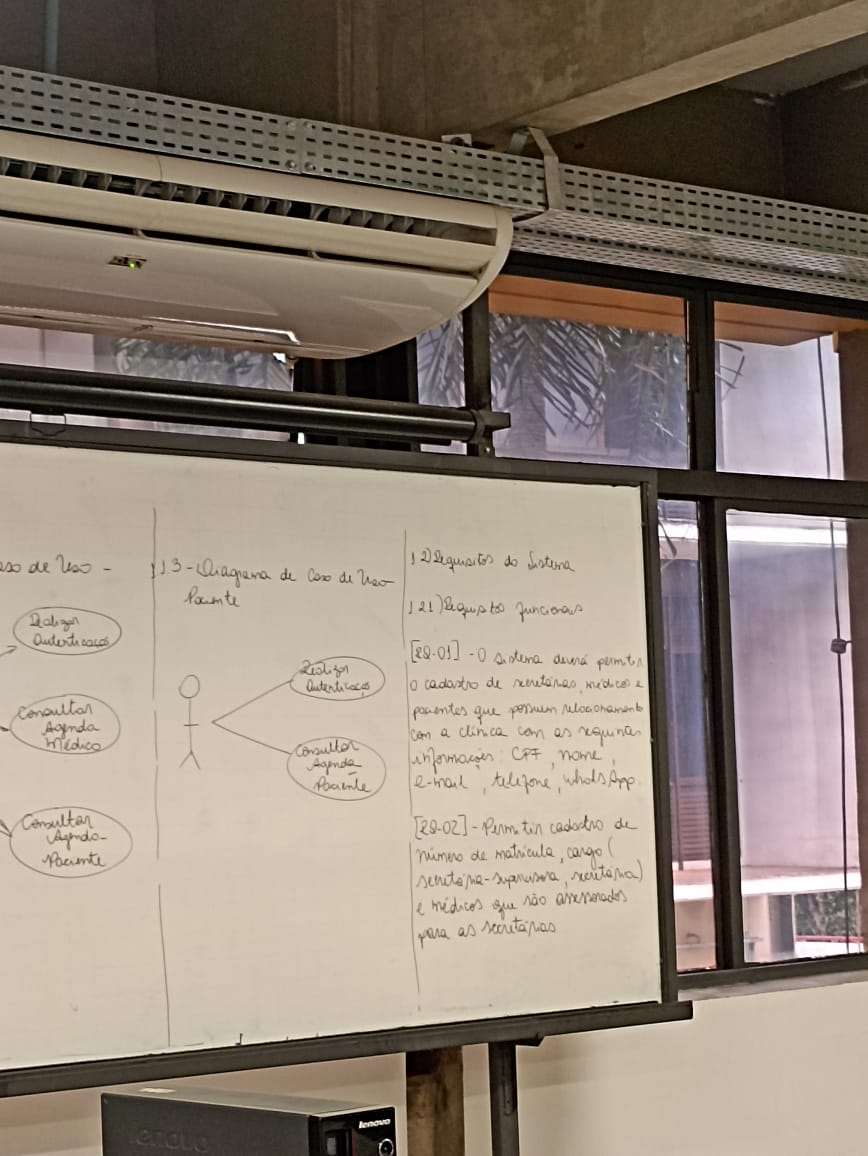 so de Uso -
Realizar
Autenticação
Consultar
Agenda
Médico
Consultar
Agenda-
Paciente
1.3-Diagrama de Caso de Uso
Paciente
Realizar
Autenticação
Consultar
Agenda
Paciente
1.2)Requisitos do Sistema
1.2.1)Requisitos funcionais
[RQ-01] - O sistema deverá permitir
o cadastro de secretárias, médicos e
pacientes que possuem relacionamento
com a clínica com as seguintes
informações: CPF, nome,
e-mail, telefone, whatsApp.
[RQ-02] - Permitir cadastro de
número de matrícula, cargo (
secretária-supervisora, secretária)
e médicos que são assessorados
para as secretárias
lenovo
lenovo